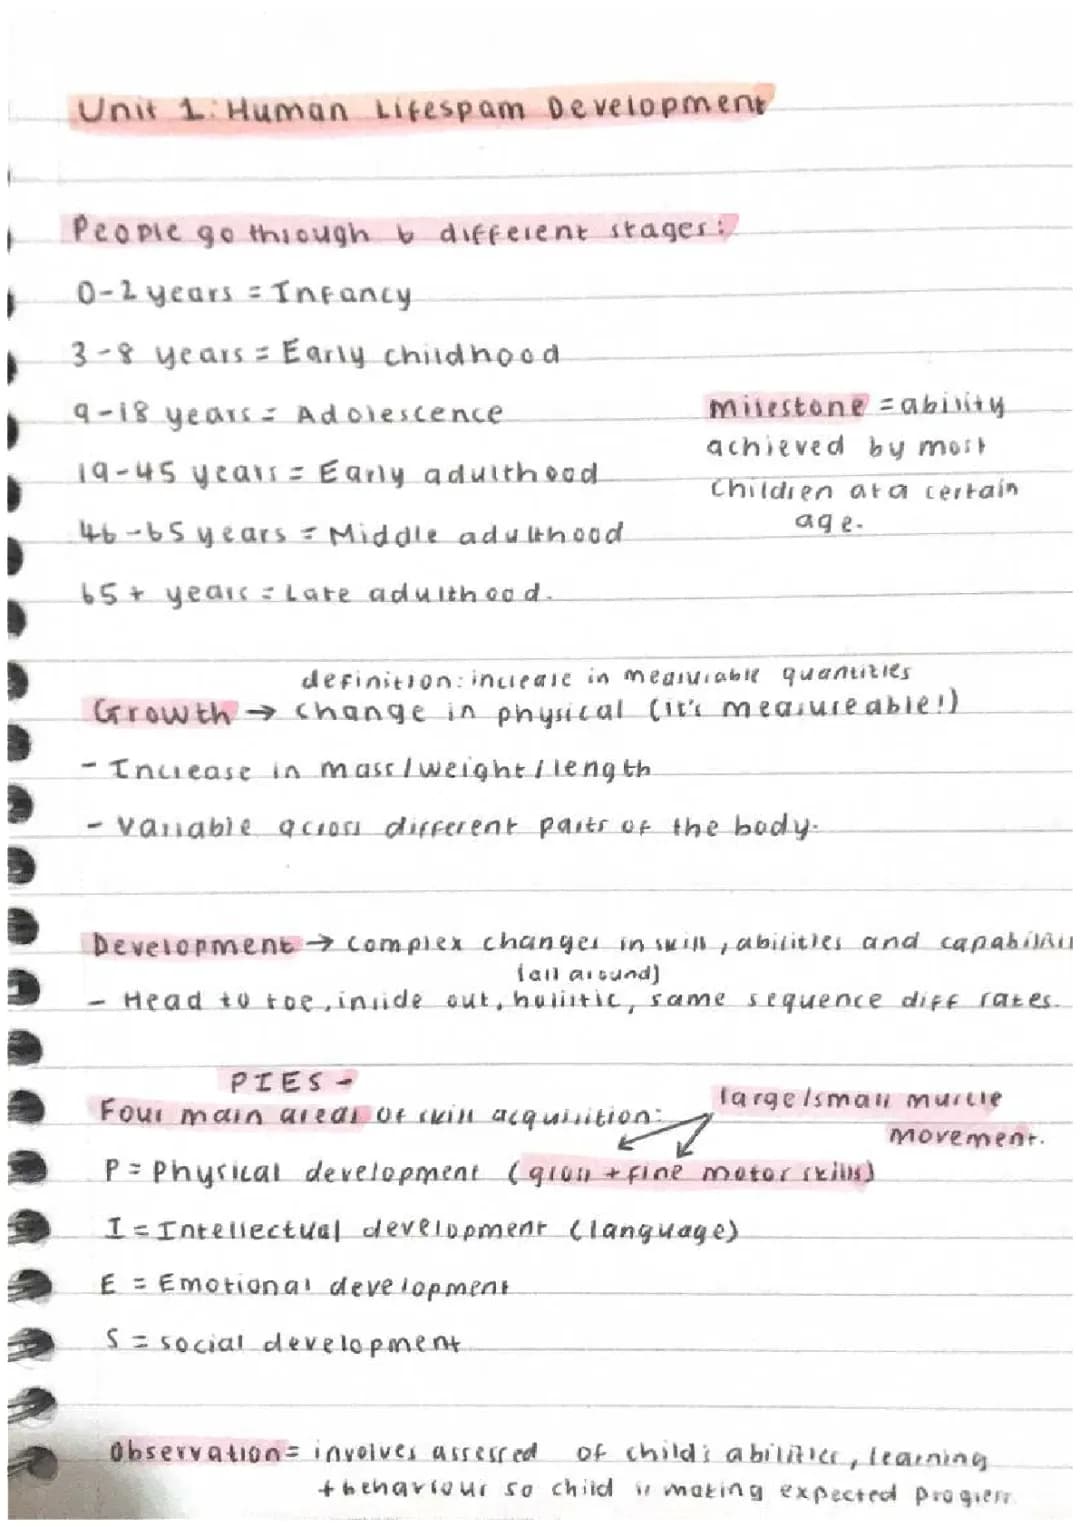 Unit 1: Human Lifespam Development
People go through 6 different stages:
0-2 years = Infancy
3-8 years = Early childhood
9-18 years = Adolescence
19-45 years = Early adulthood
46-65 years = Middle adulthood
65+ years = Late adulthood.
Milestone = ability
achieved by most
Children at a certain
age.
definition: increase in measurable quantities
Growth → change in physical (it's measureable!)
- Increase in mass/weight/length
- Variable across different parts of the body.
Development → complex changes in skill, abilities and
(all around)
- Head to toe, inside out, holistic, same sequence diff rates.
PIES -
Four main areas of skill acquisition:
large/small muscle
movement.
P = Physical development (gross + fine motor skills)
I = Intellectual development (language)
E = Emotional development
S = social development
Observation = involves assessed of child's abilities, learning
+ behaviour so child is making expected progress.